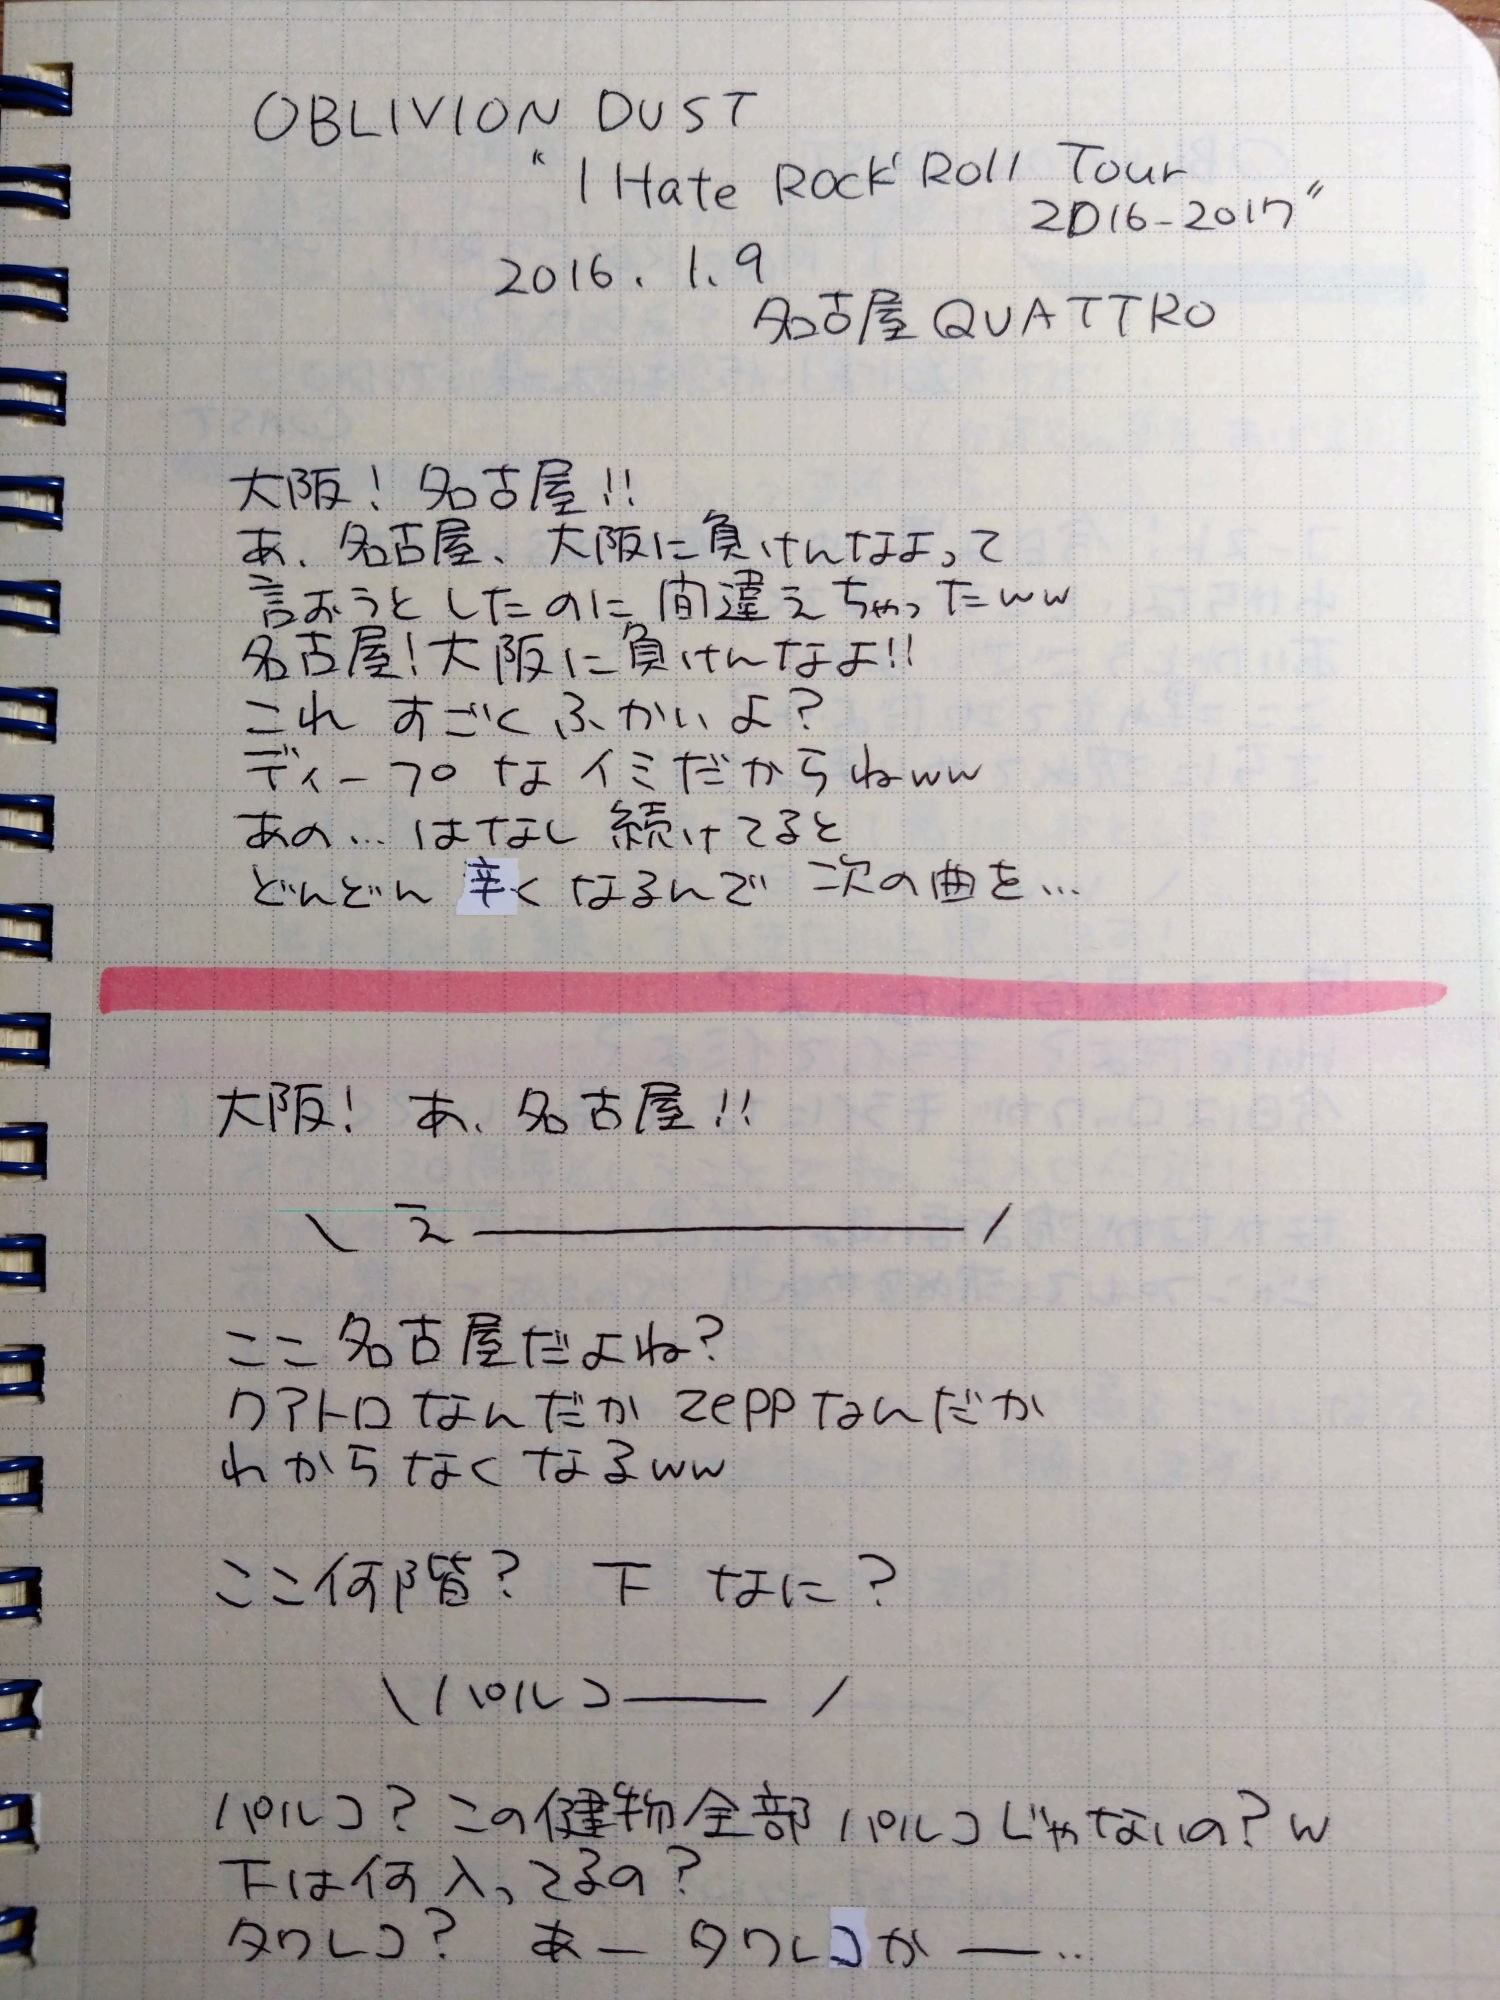 OBLIVION DUST
"I Hate Rock'Roll Tour
2016-2017"
2016.1.9
名古屋QUATTRO
大阪! 名古屋!!
あ、名古屋、大阪に負けんなよって
言おうとしたのに間違えちゃったww
名古屋!大阪に負けんなよ!!
これ すごくふかいよ?
ディープなイミだからねww
あの…はなし続けてると
どんどん辛くなるんで 次の曲を…
大阪! あ、名古屋!!
\ え――――――/
ここ名古屋だよね?
クアトロなんだか zeppなんだか
わからなくなるww
ここ何階? 下 なに?
\パルコ―― /
パルコ?この健物全部パルコじゃないの?w
下は何入ってるの?
タワレコ? あー タワレコかー…